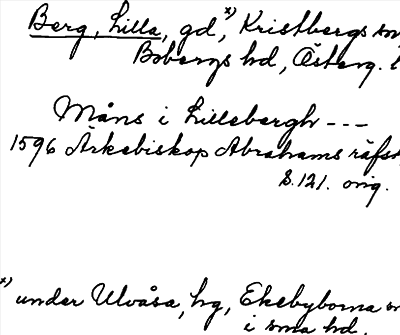 Berg, Lilla, gd,x) Kristbergs sn
Bobergs hd, Österg. l
Måns i Lillebergh ---
1596 Ärkebiskop Abrahams räfst,
S. 121. orig.
x) under Ulvåsa, hg, Ekebyborna sn
i sma hd.